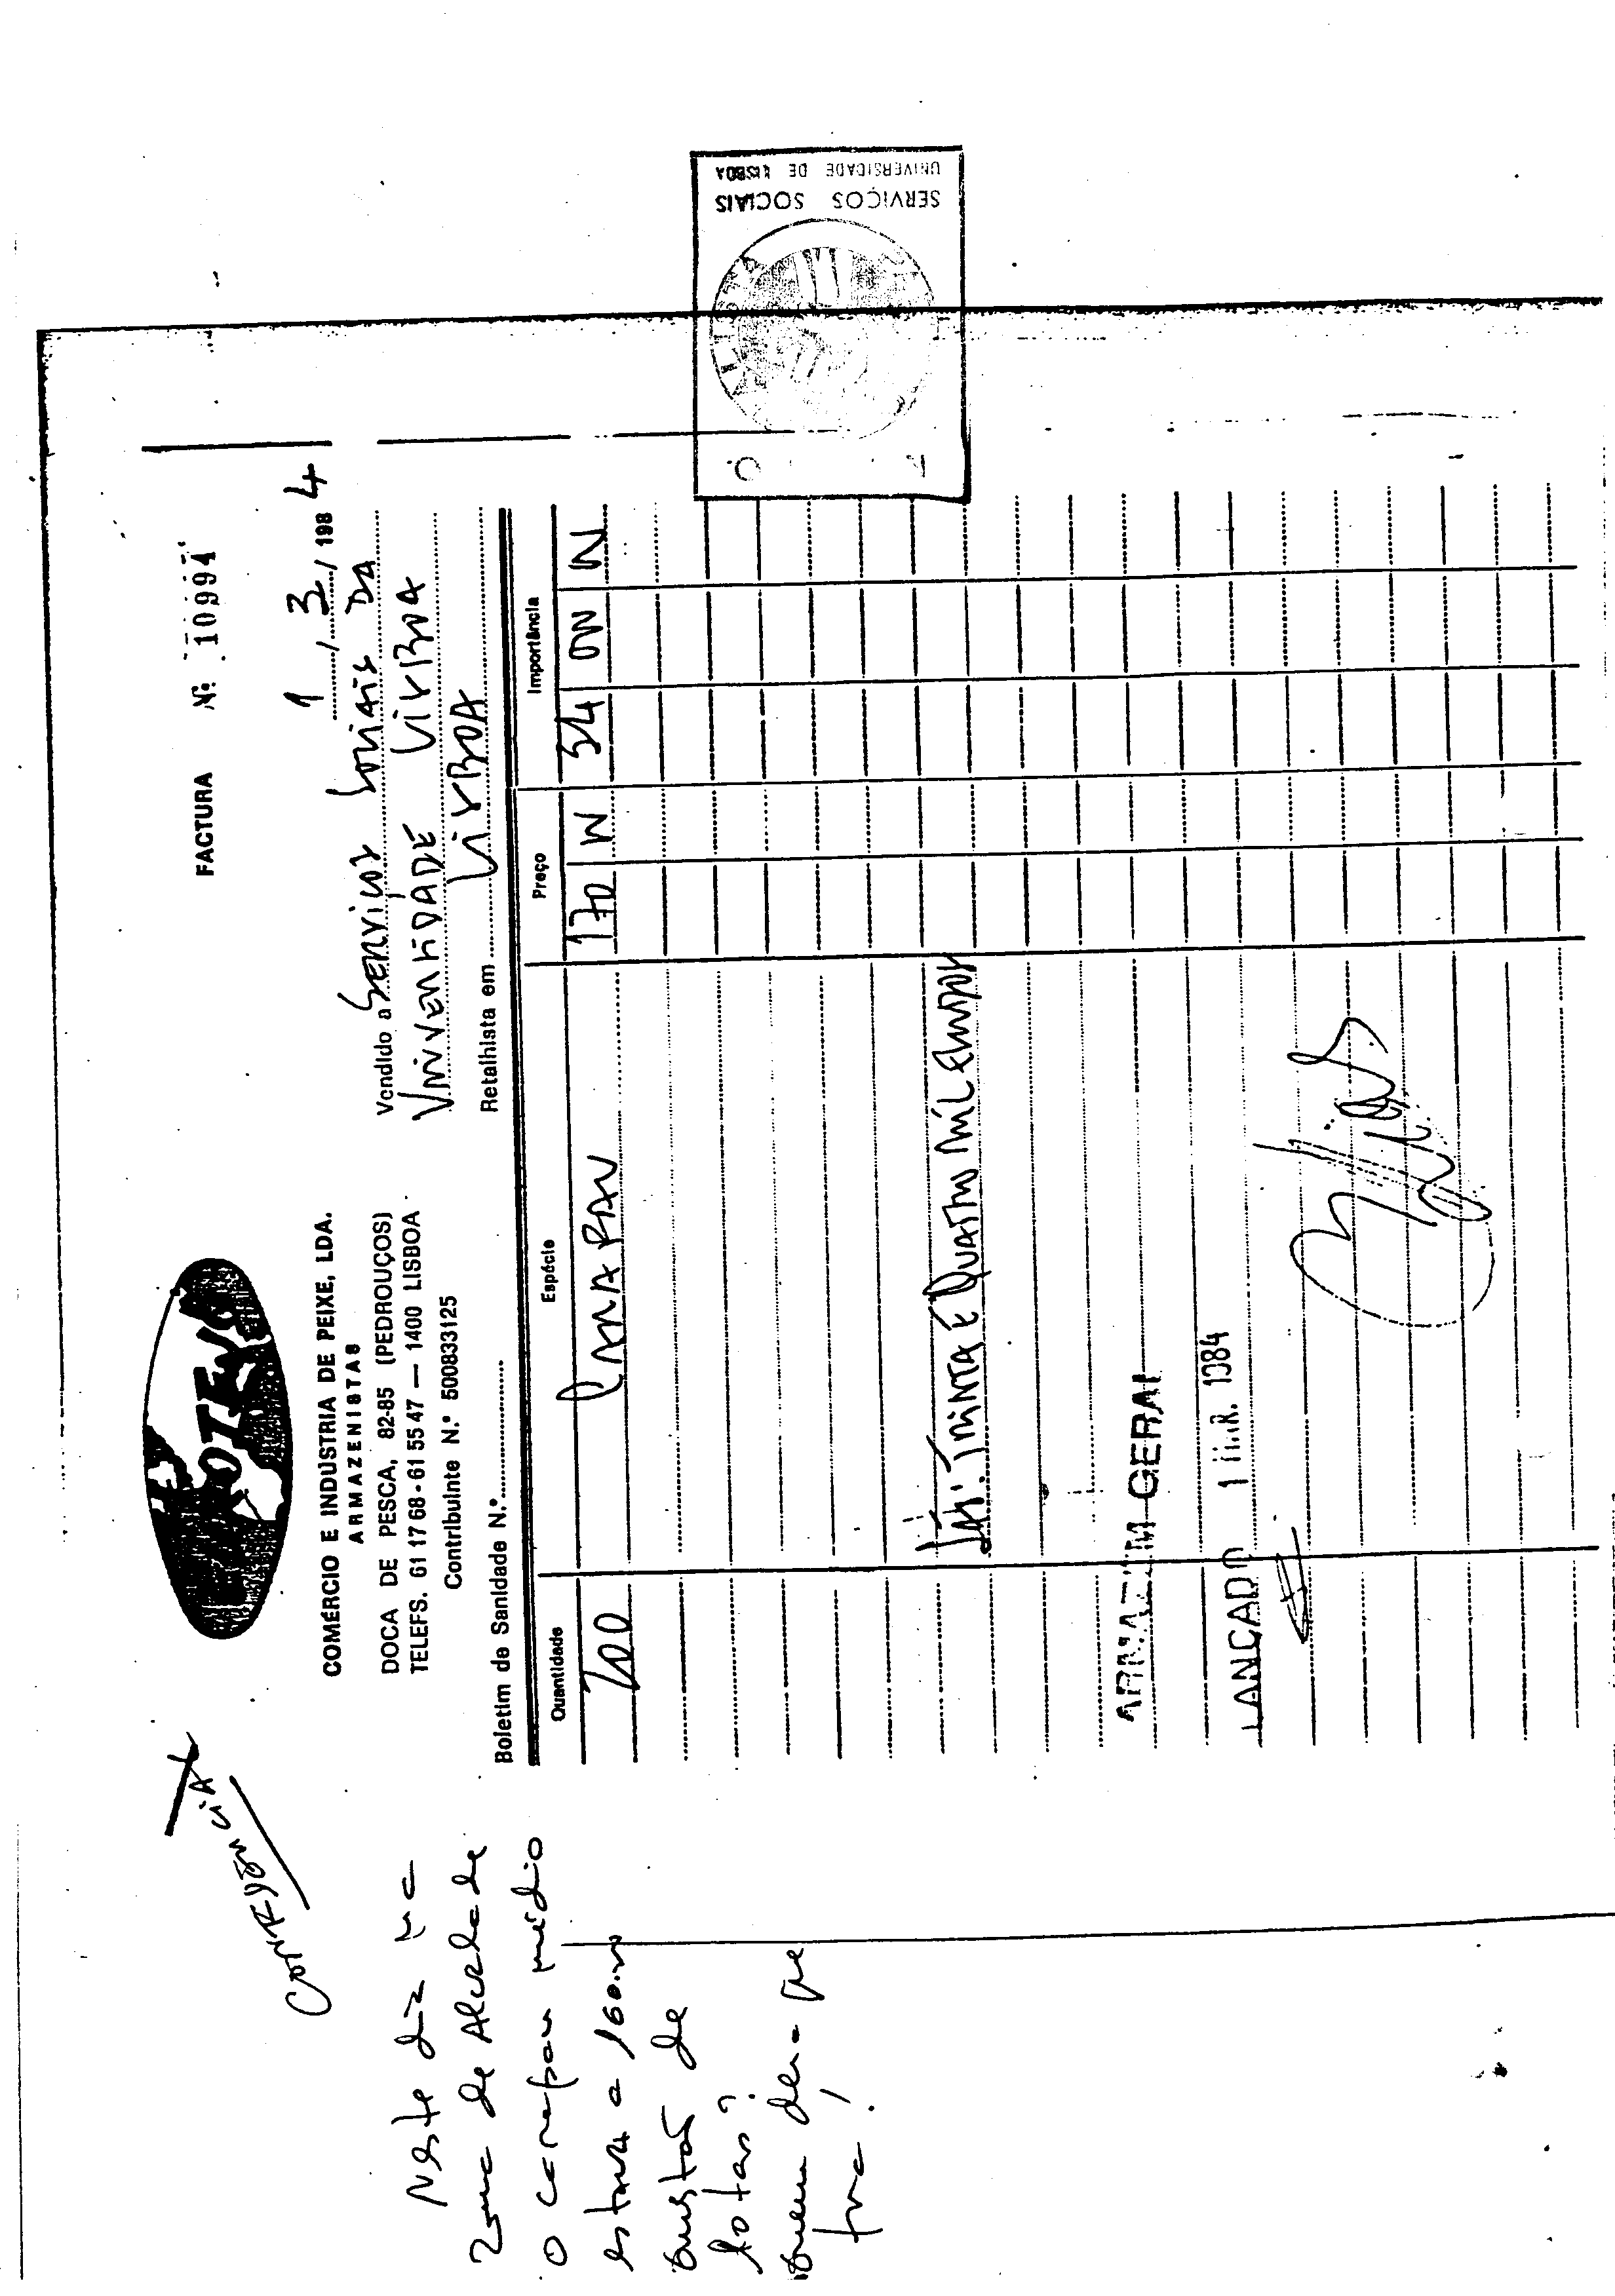 FACTURA Nº 10994
1 / 3 / 1984
COMÉRCIO E INDÚSTRIA DE PEIXE, LDA.
ARMAZENISTAS
DOCA DE PESCA, 82-85 (PEDROUÇOS)
TELEFS. 61 17 68 - 61 55 47 — 1400 LISBOA
Contribuinte N.º 500833125
Vendido a Serviços Sociais DA
UNIVERSIDADE LISBOA
Retalhista em LISBOA
Boletim de Sanidade N.º
Quantidade Espécie Preço Importância
200 CARAPAU 170 00 34 000 00
São: TRINTA E QUATRO MIL ESCUDOS
ARMAZEM GERAL
LANCADO 1 MAR. 1984
SERVIÇOS SOCIAIS
UNIVERSIDADE DE LISBOA
CONFIDÊNCIA
Neste dia na
zona de Alvalade
o carapau médio
estava a 160.00
questão de
lotas?
Quem dera que
fora!